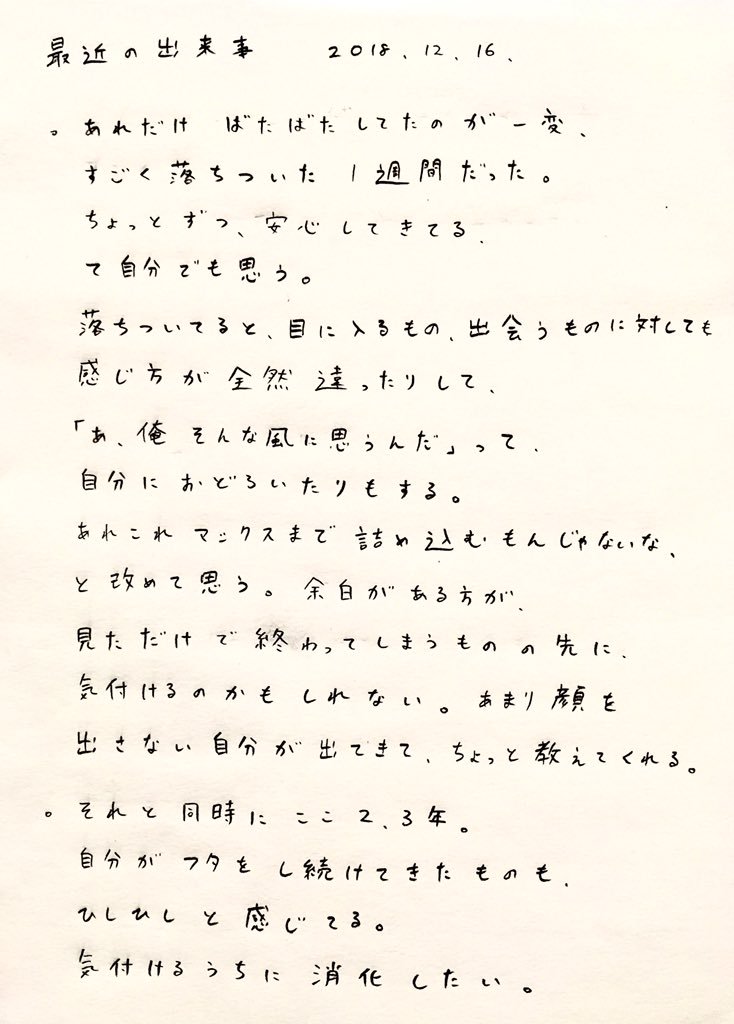 最近の出来事 2018.12.16.
。あれだけ ばたばたしてたのが一変、
すごく落ちついた 1週間だった。
ちょっとずつ、安心してきてる、
て自分でも思う。
落ちついてると、目に入るもの、出会うものに対しても
感じ方が全然違ったりして、
「あ、俺そんな風に思うんだ」って、
自分におどろいたりもする。
あれこれマックスまで詰め込むもんじゃないな、
と改めて思う。余白がある方が、
見ただけで終わってしまうものの先に、
気付けるのかもしれない。あまり顔を
出さない自分が出てきて、ちょっと教えてくれる。
。それと同時にここ2、3年。
自分がフタをし続けてきたものも、
ひしひしと感じてる。
気付けるうちに消化したい。